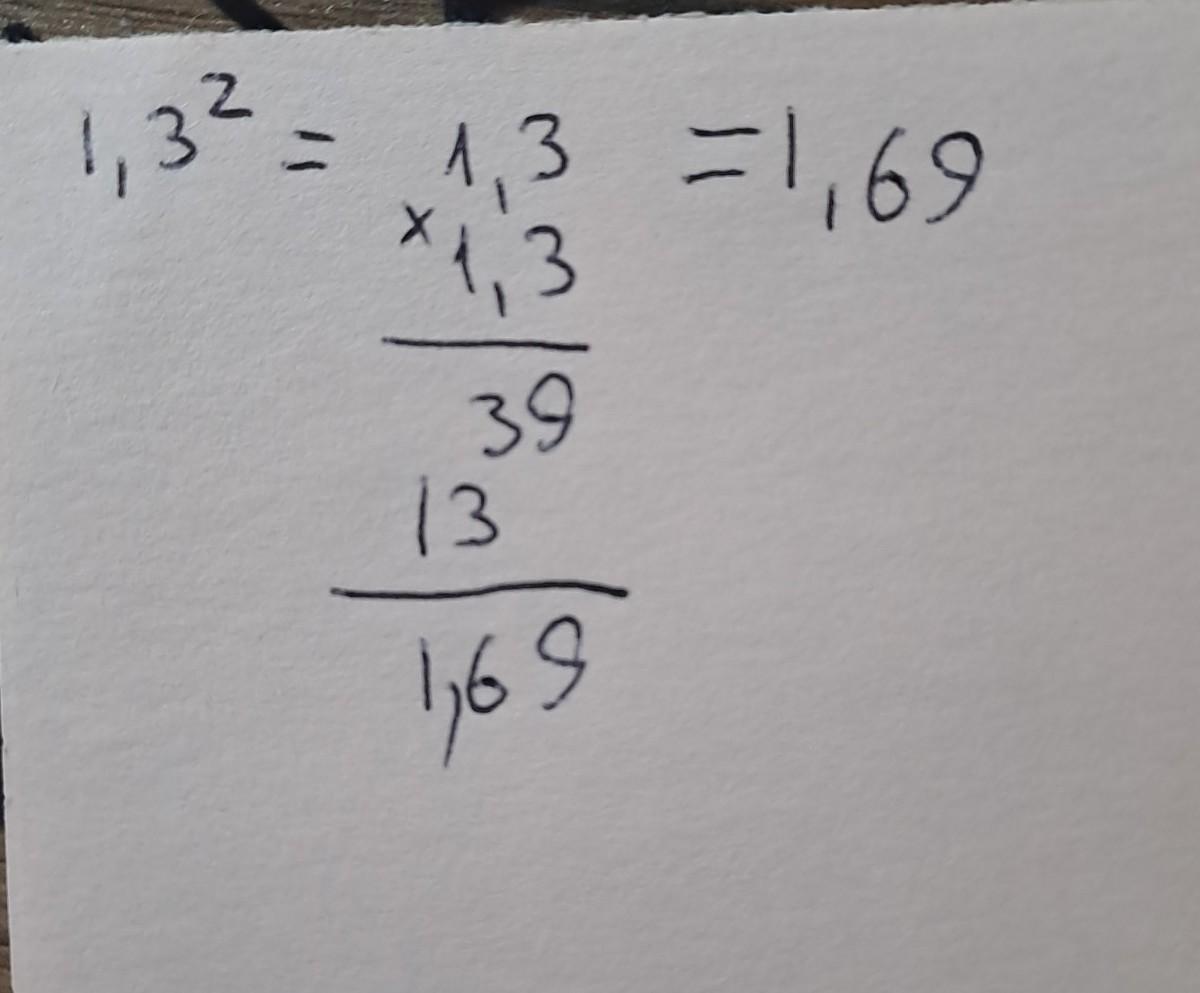 1,3² = 1,3 = 1,69
x 1,3
39
13
1,69